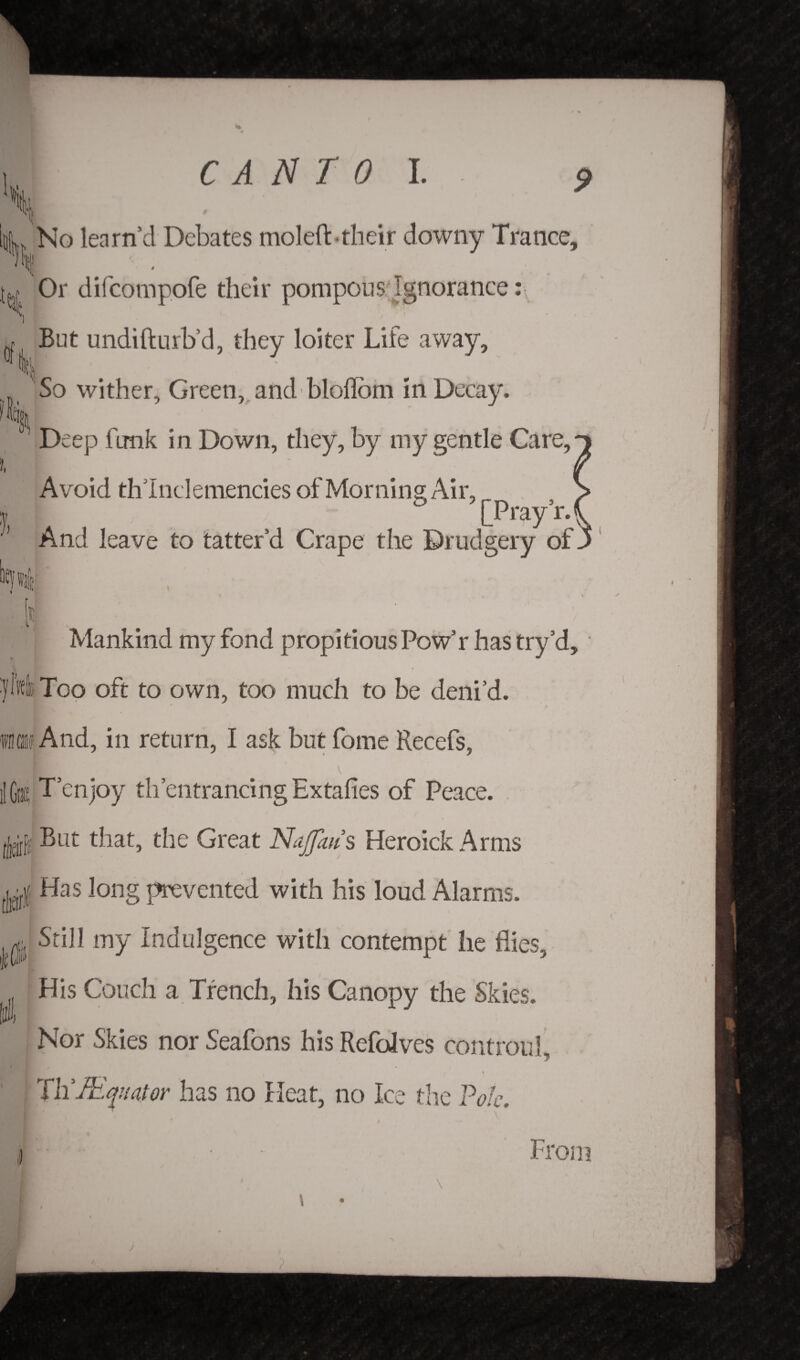 CANTO I. 9
No learn'd Debates moleſt their downy Trance,
Or diſcompoſe their pompous Ignorance:
But undiſturb'd, they loiter Life away,
So wither, Green, and bloſſom in Decay.
Deep ſunk in Down, they, by my gentle Care,
Avoid th'Inclemencies of Morning Air,
[Pray'r.
And leave to tatter'd Crape the Drudgery of
Mankind my fond propitious Pow'r has try'd,
Too oft to own, too much to be deni'd.
And, in return, I ask but ſome Receſs,
T'enjoy th'entrancing Extaſies of Peace.
But that, the Great Naſſau's Heroick Arms
Has long prevented with his loud Alarms.
Still my Indulgence with contempt he flies,
His Couch a Trench, his Canopy the Skies.
Nor Skies nor Seaſons his Reſolves controul,
Th'Æquator has no Heat, no Ice the Pole.
From